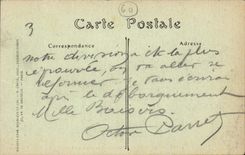 60
3
Carte Postale
Correspondance
Adresse
notre division a été la plus
éprouvée, on va aller se
reformer je vous écrirai
au débarquement
Mille Baisers